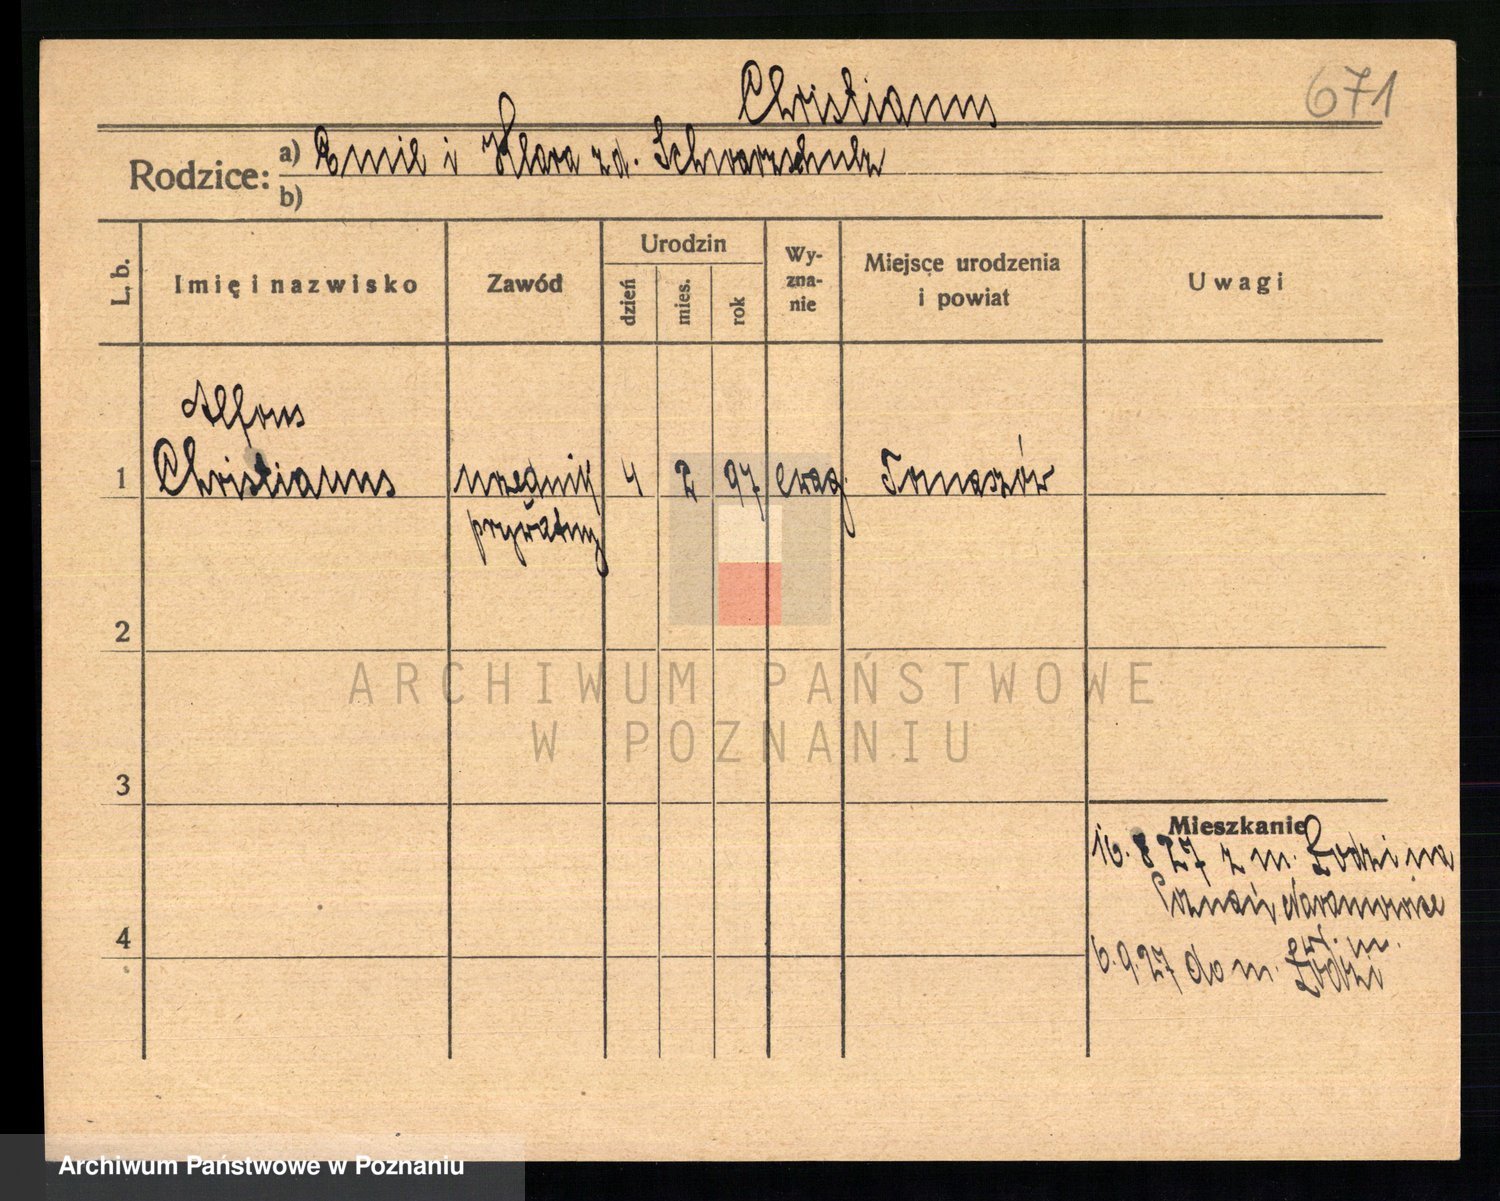 Christianns
671
Rodzice: a) Emil i Klara zd. Schwarzschulz
b)
L. b.
Imię i nazwisko
Zawód
Urodzin
dzień
mies.
rok
Wy-
zna-
nie
Miejsce urodzenia
i powiat
Uwagi
Alfons
1 Christianns urzędnik 4 2 97 ewag. Tomaszów
prywatny
2
ARCHIWUM PAŃSTWOWE
W POZNANIU
3
Mieszkanie
16. 8 27 z m. Łodzi na
Poznań, Naramowice
m.
4
6. 9. 27 do m. Łodzi
Archiwum Państwowe w Poznaniu